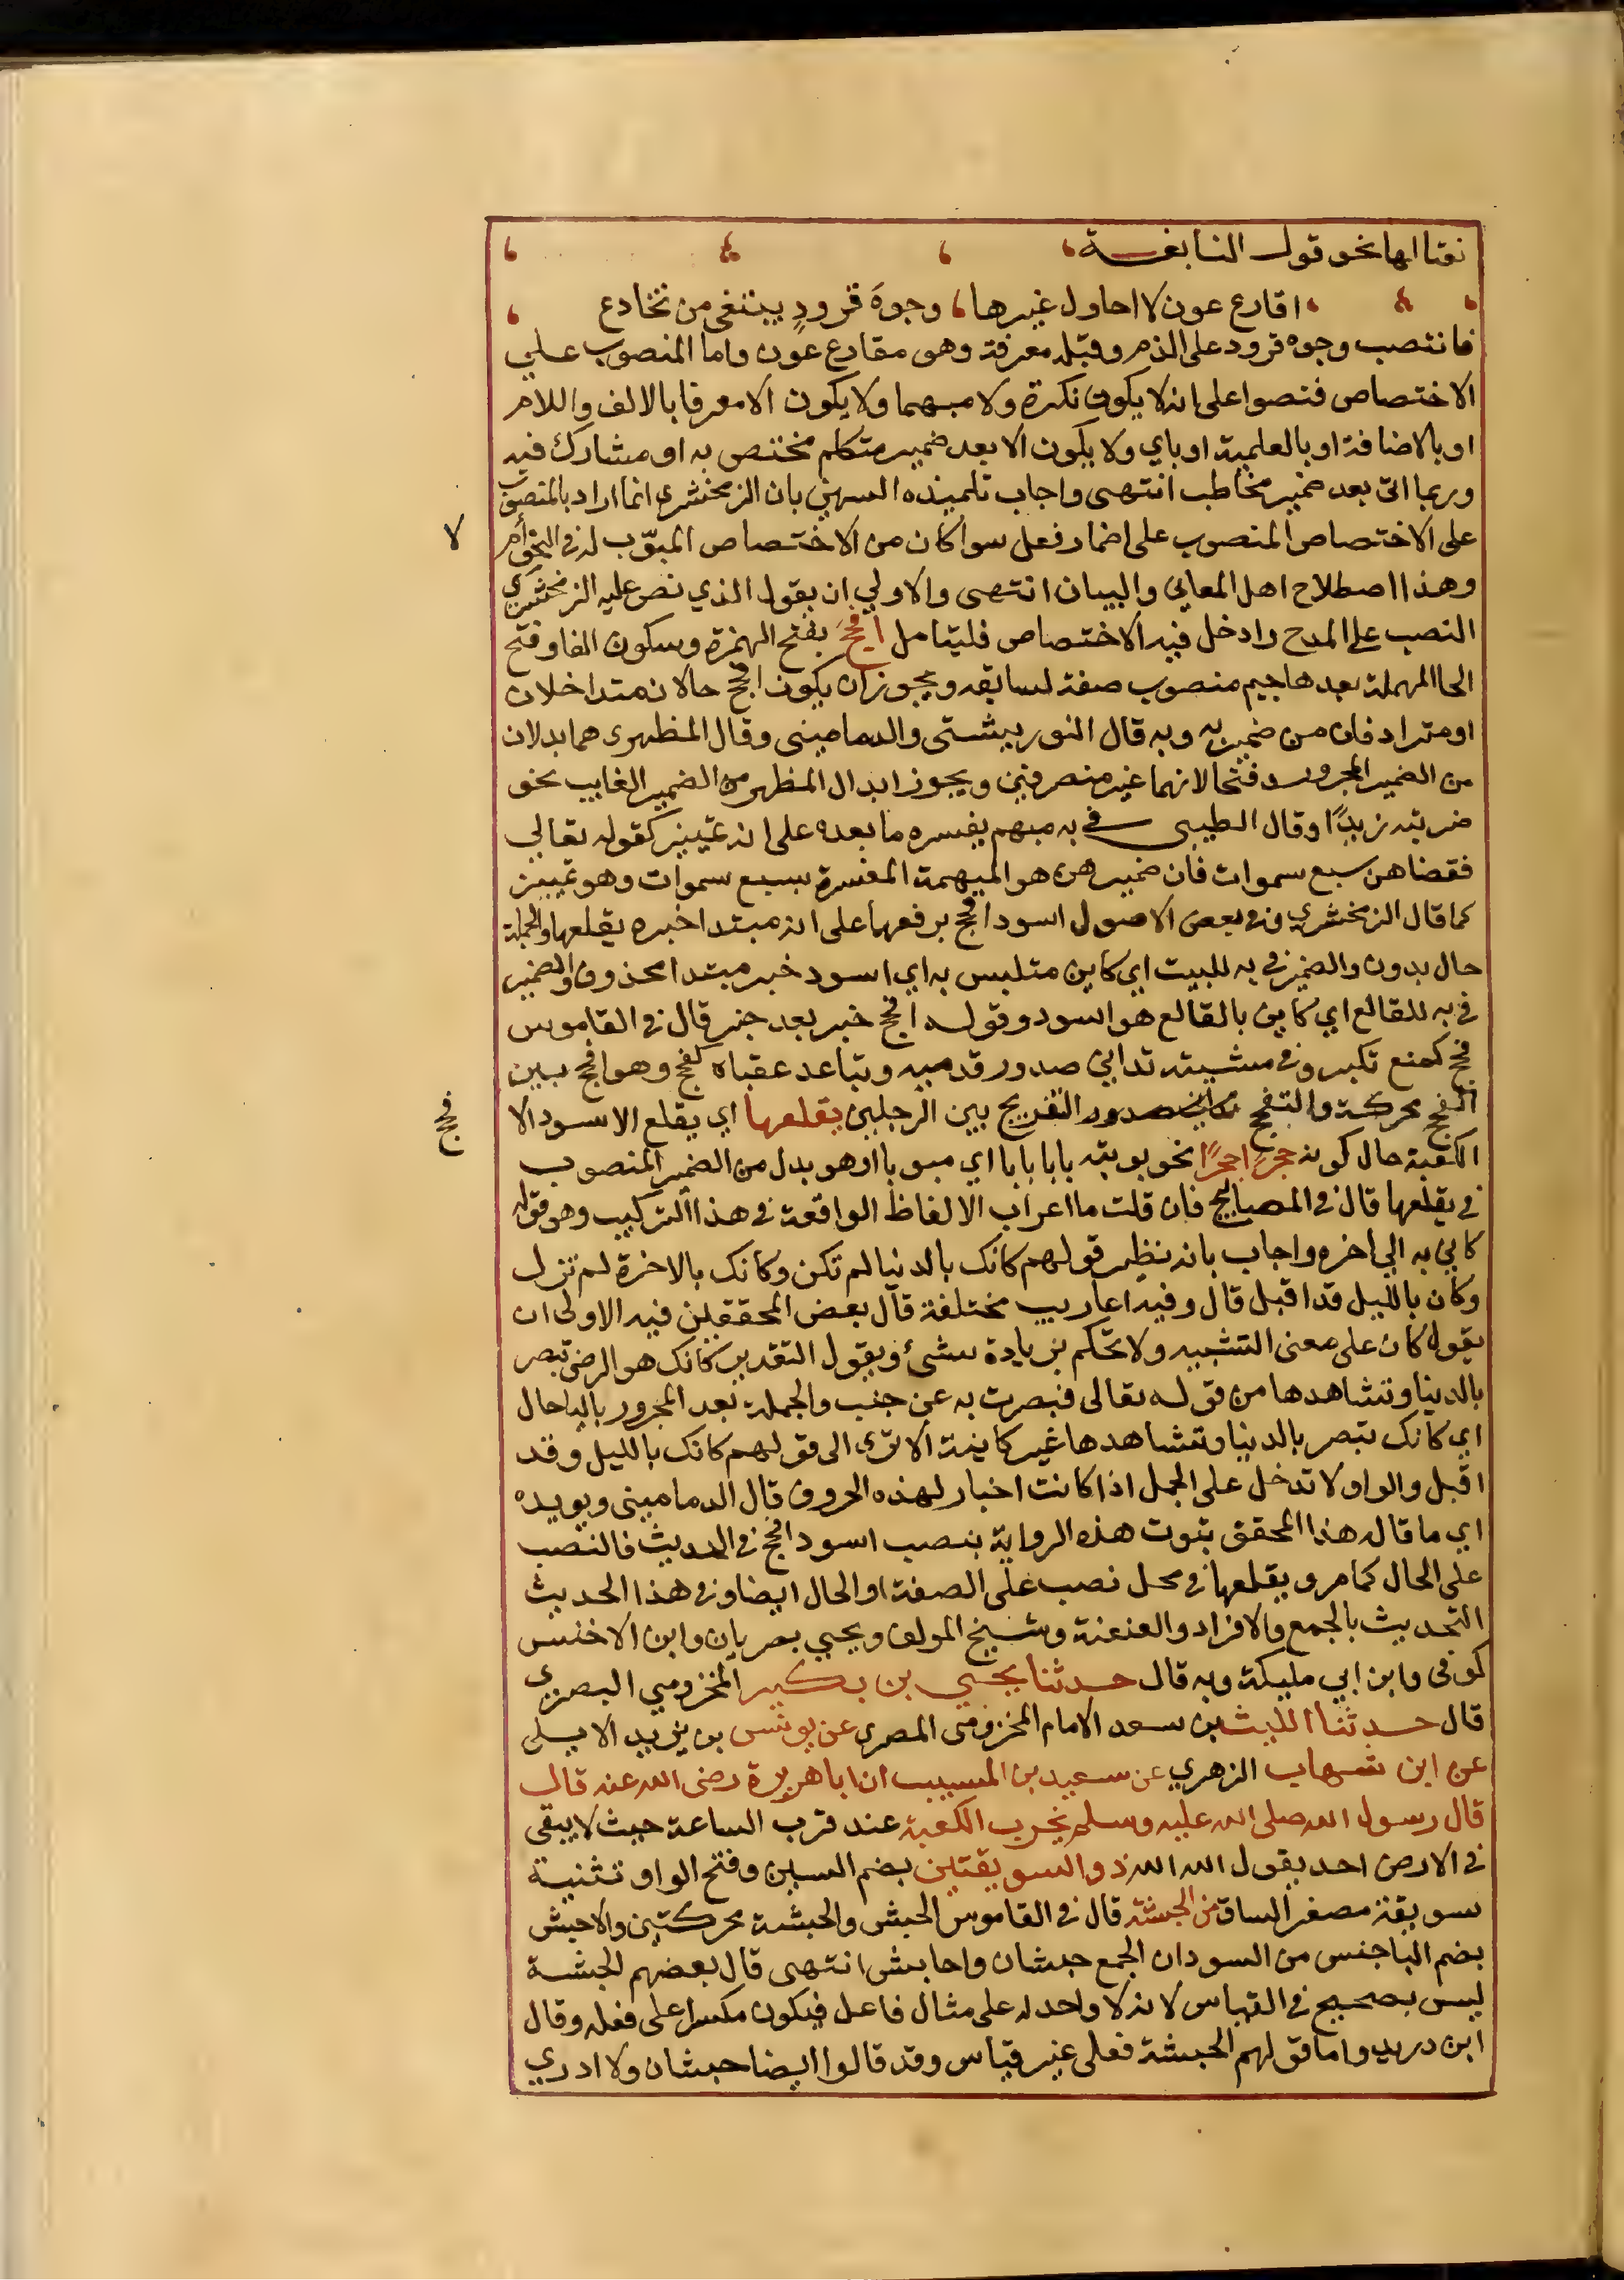 نقتا انها نحو قول النابغة
اقارع عون لا احاول غيرها وجوهَ قرودٍ يبتغي من تخادع
فانتصب وجوه قرود على الذم وقبله معرفة وهو مقارع عون واما المنصوب علي
الاختصاص فنصوا على انه لا يكون نكرة ولا مبهما ولا يكون الا معرفا بالالف واللام
او بالاضافة او بالعلمية او باي ولا يكون الا بعد ضمير متكلم مختص به او مشارك فيه
وربما اتى بعد ضمير مخاطب انتهى واجاب تلميذه السمين بان الزمخشري انما اراد بالمنصوب
على الاختصاص المنصوب على اضمار فعل سوا كان من الاختصاص المبوّب له في النحو أم لا
وهذا اصطلاح اهل المعاني والبيان انتهى والاولي ان يقول الذي نص عليه الزمخشري
النصب على المدح وادخل فيه الاختصاص فليتامل أفحجَ بفتح الهمزة وسكون الفا وفتح
الحا المهملة بعدها جيم منصوب صفة لسابقه ويجوز ان يكون افحج حالان متداخلان
او مترادفان من ضمير به وبه قال التوربيشتي والدماميني وقال المظهري هما بدلان
من الضمير المجرور فتحا لانهما غير منصرفين ويجوز ابدال المظهر من الضمير الغايب نحو
ضربته زيدًا وقال الطيبي في به مبهم يفسره ما بعده على انه تمييز كقوله تعالي
فقضاهن سبع سموات فان ضمير هن هو المبهمة المفسرة بسبع سموات وهو تمييز
كما قال الزمخشري وفي بعض الاصول اسود افحج برفعها على انه مبتدا خبره يقلعها والجملة
حال بدون والضمير في به للبيت اي كاين متلبس به اي اسود خبر مبتدا محذوف والضمير
في به للقالع اي كاين بالقالع هو اسود وقوله افحج خبر بعد خبر قال في القاموس
فحج كمنع تكبر وفي مشيته تدانى صدور قدميه وتباعد عقباه كفحج وهو افحج بين
الفحج محركة والتفحج التفريج بين الرجلين يقلعها اي يقلع الاسود الا فحج
الكعبة حال كونه حجرًا حجرًا نحو بوبته بابا بابا اي مبوبا او هو بدل من الضمير المنصوب
في يقلعها قال في المصابيح فان قلت ما اعراب الالفاظ الواقعة في هذا التركيب وهو قوله
كاني به الي اخره واجاب بانه نظير قولهم كانك بالدنيا لم تكن وكانك بالاخرة لم تزل
وكان بالليل قد اقبل قال وفيه اعاريب مختلفة قال بعض المحققين فيه الاولى ان
يقول كان على معنى التشبيه ولا تحكم بزيادة شيء ويقول التقدير كانك هو الرضي تبصر
بالدنيا وتشاهدها من قوله تعالى فبصرت به عن جنب والجملة بعد المجرور بالبا حال
اي كانك تبصر بالدنيا وتشاهدها غير كاينة الا ترى الى قولهم كانك بالليل وقد
اقبل والواو لا تدخل على الجمل اذا كانت اخبار لهذه الحروف قال الدماميني ويويده
اي ما قاله هذا المحقق ثبوت هذه الرواية بنصب اسود افحج في الحديث فالنصب
على الحال كما مر ويقلعها في محل نصب على الصفة او الحال ايضا وفي هذا الحديث
التحديث بالجمع والافراد والعنعنة وشيخ المولف ويحيي بصريان وابن الاخنس
كوفى وابن ابي مليكة وبه قال حدثنا يحيي بن بكير المخزومي البصري
قال حدثنا الليث بن سعد الامام المخزومى المصري عن يونس بن يزيد الايلي
عن ابن شهاب الزهري عن سعيد بن المسيب ان ابا هريرة رضى الله عنه قال
قال رسول الله صلى الله عليه وسلم يخرب الكعبة عند قرب الساعة حيث لا يبقى
في الارض احد يقول الله الله ذو السويقتين بضم السين وفتح الواو تثنية
سويقة مصغر الساق من الحبشة قال في القاموس الحبش والحبشة محركتين والاحبش
بضم البا جنس من السودان الجمع حبشان واحابش انتهى قال بعضهم الحبشة
ليس بصحيح في القياس لانه لا واحد له على مثال فاعل فيكون مكسرا على فعله وقال
ابن دريد واما قولهم الحبشة فعلى غير قياس وقد قالوا ايضا حبشان ولا ادري